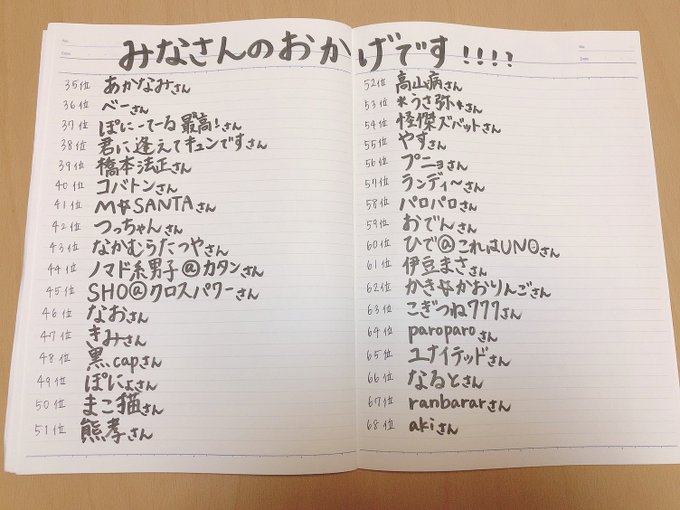 みなさんのおかげです!!!!
35位 あかなみさん
36位 べーさん
37位 ぽにーてーる最高!さん
38位 君に逢えてキュンですさん
39位 橋本法正さん
40位 コバトンさん
41位 M☆SANTAさん
42位 つっちゃんさん
43位 なかむらたつやさん
44位 ノマド系男子@カタンさん
45位 SHO@クロスパワーさん
46位 なおさん
47位 きみさん
48位 黒capさん
49位 ぽにょさん
50位 まこ猫さん
51位 熊孝さん
52位 高山病さん
53位 *うさ弥*さん
54位 怪傑ズバットさん
55位 やすさん
56位 プニョさん
57位 ランディ〜さん
58位 パロパロさん
59位 おでんさん
60位 ひで@これはUNOさん
61位 伊豆まささん
62位 かき☆かおりんごさん
63位 こぎつね777さん
64位 paroparoさん
65位 ユナイテッドさん
66位 なるとさん
67位 ranbararさん
68位 akiさん